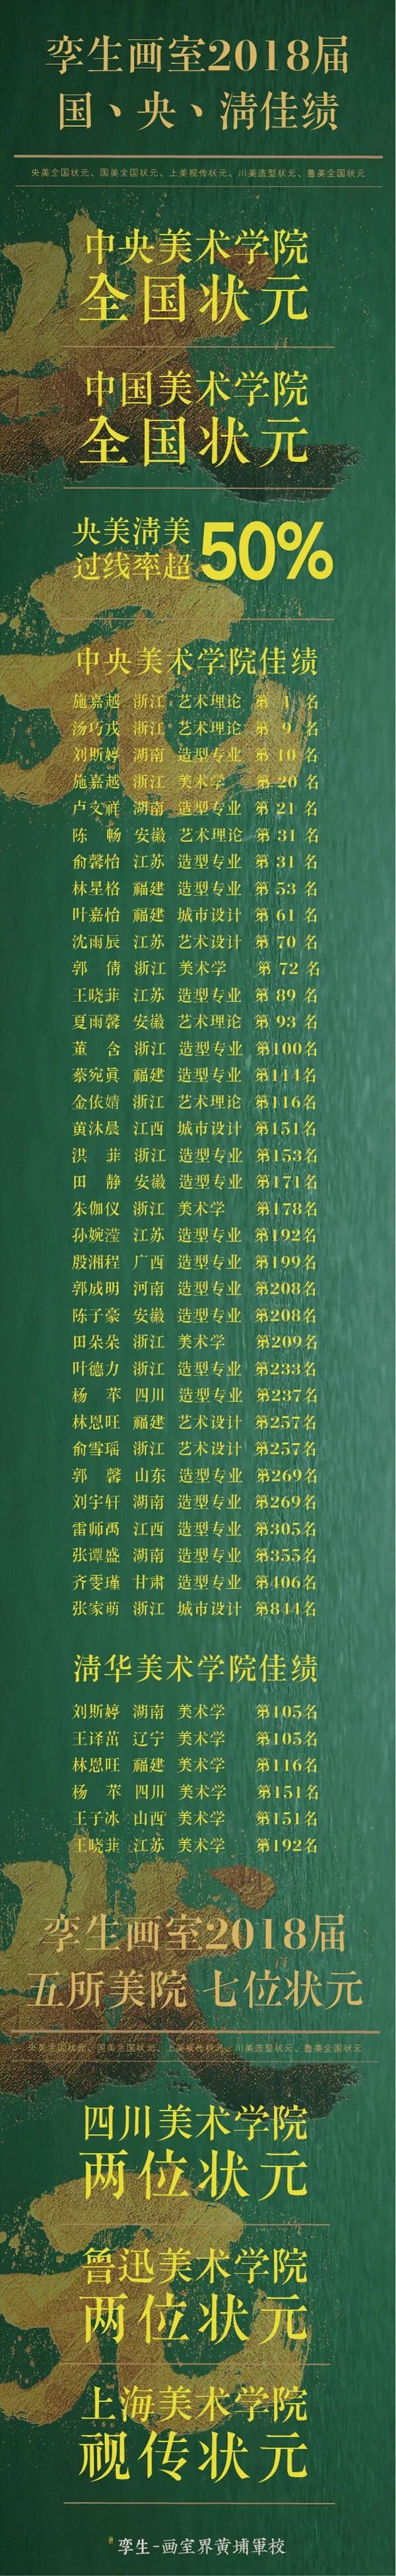 孪生画室2018届
国、央、清佳绩
央美全国状元、国美全国状元、上美视传状元、川美造型状元、鲁美全国状元
中央美术学院
全国状元
中国美术学院
全国状元
央美清美
过线率超50%
中央美术学院佳绩
施嘉越 浙江 艺术理论 第 1 名
汤巧戎 浙江 艺术理论 第 9 名
刘斯婷 湖南 造型专业 第 10 名
施嘉越 浙江 美术学 第 20 名
卢文祥 湖南 造型专业 第 21 名
陈 畅 安徽 艺术理论 第 31 名
俞馨怡 江苏 造型专业 第 31 名
林星格 福建 造型专业 第 53 名
叶嘉怡 福建 城市设计 第 61 名
沈雨辰 江苏 艺术设计 第 70 名
郭 倩 浙江 美术学 第 72 名
王晓菲 江苏 造型专业 第 89 名
夏雨馨 安徽 艺术理论 第 93 名
董 含 浙江 造型专业 第100名
蔡宛真 福建 造型专业 第114名
金依婧 浙江 艺术理论 第116名
黄沐晨 江西 城市设计 第151名
洪 菲 浙江 造型专业 第153名
田 静 安徽 造型专业 第171名
朱伽仪 浙江 美术学 第178名
孙婉滢 江苏 造型专业 第192名
殷湘程 广西 造型专业 第199名
郭成明 河南 造型专业 第208名
陈子豪 安徽 造型专业 第208名
田朵朵 浙江 美术学 第209名
叶德力 浙江 造型专业 第233名
杨 苹 四川 造型专业 第237名
林恩旺 福建 艺术设计 第257名
俞雪瑶 浙江 艺术设计 第257名
郭 馨 山东 造型专业 第269名
刘宇轩 湖南 造型专业 第269名
雷师禹 江西 造型专业 第305名
张谭盛 湖南 造型专业 第355名
齐雯瑾 甘肃 造型专业 第406名
张家萌 浙江 城市设计 第844名
清华美术学院佳绩
刘斯婷 湖南 美术学 第105名
王译茁 辽宁 美术学 第105名
林恩旺 福建 美术学 第116名
杨 苹 四川 美术学 第151名
王子冰 山西 美术学 第151名
王晓菲 江苏 美术学 第192名
孪生画室2018届
五所美院 七位状元
央美全国状元、国美全国状元、上美视传状元、川美造型状元、鲁美全国状元
四川美术学院
两位状元
鲁迅美术学院
两位状元
上海美术学院
视传状元
孪生-画室界黄埔軍校